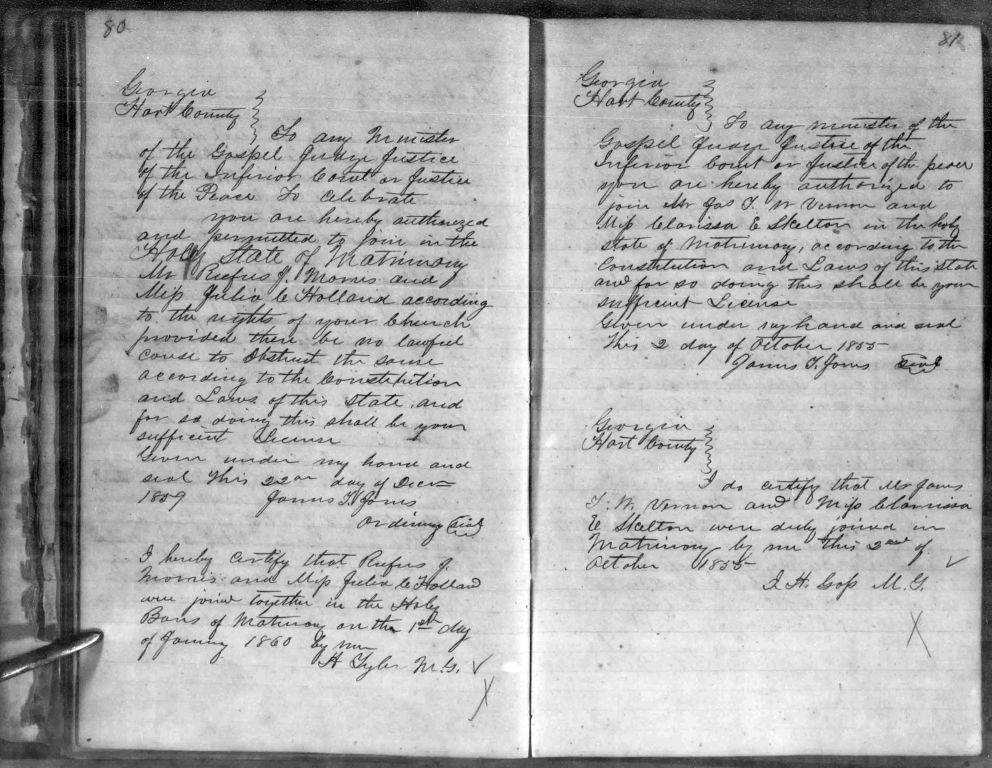 80
Georgia
Hart County
To any Minister
of the Gospel Judge Justice
of the Inferior Court or Justice
of the Peace To Celebrate
you are hereby authorized
and permitted to join in the
Holy State of Matrimony
Mr Rufus J. Morris and
Miss Julia C Holland according
to the rights of your Church
provided there be no lawful
cause to Obstruct the same
according to the Constitution
and Laws of this State and
for so doing this shall be your
sufficient License
Given under my hand and
seal This 22nd day of Decr
1859 James T. Jones
Ordinary Seal
I hereby certify that Rufus J.
Morris and Miss Julia C Holland
were joined together in the Holy
Bans of Matrimony on the 1st day
of January 1860 by me
H Tyler M.G.
81
Georgia
Hart County
To any minister of the
Gospel Judge Justice of the
Inferior Court or Justice of the peace
you are hereby authorized to
join Mr Jas T. W Vernon and
Miss Clarissa E Skelton in the holy
State of Matrimony, according to the
Constitution and Laws of this State
and for so doing this shall be your
sufficient License
Given under my hand and seal
This 2 day of October 1855
James T. Jones Seal
Georgia
Hart County
I do certify that Mr James
T. W. Vernon and Miss Clarissa
E Skelton were duly joined in
Matrimony by me this 2nd of
October 1855
I. H. Goss M.G.